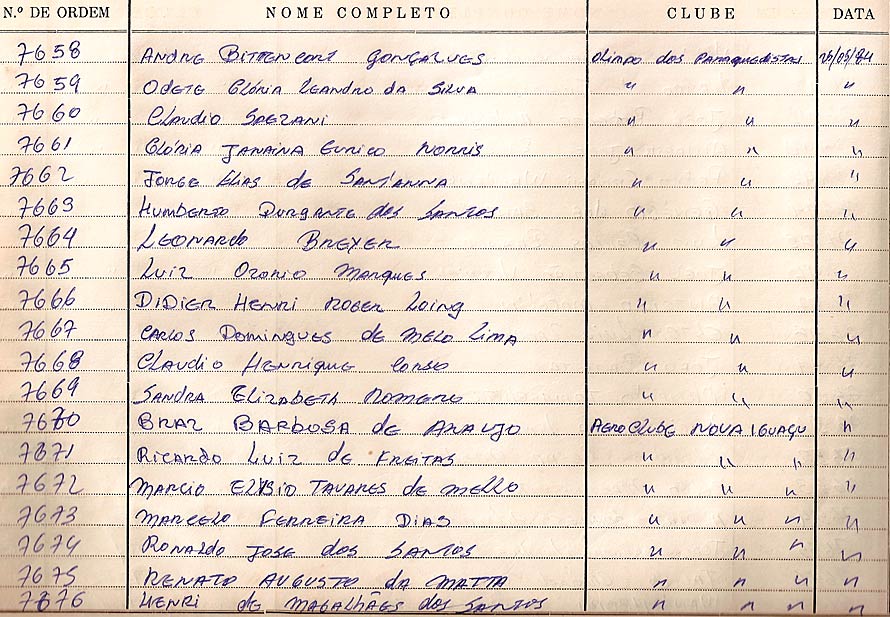 N.º DE ORDEM NOME COMPLETO CLUBE DATA
7658 ANDRE BITTENCORT GONÇALVES OLIMPO DOS PARAQUEDISTAS /05/84
7659 ODETE GLÓRIA LEANDRO DA SILVA " " "
7660 CLAUDIO " " "
7661 GLÓRIA JANAINA EURICO NORRIS " " "
7662 JORGE ELIAS de SANT'ANNA " " "
7663 HUMBERTO DURGANTE dos SANTOS " " "
7664 LEONARDO BREYER " " "
7665 LUIZ OZORIO MARQUES " " "
7666 DIDIER HENRI ROGER LOING " " "
7667 CARLOS DOMINGUES de MELO LIMA " " "
7668 CLAUDIO HENRIQUE CORSO " " "
7669 SANDRA ELIZABETH ROMERO " " "
7670 BRAZ BARBOSA de ARAUJO AEROCLUBE NOVA IGUAÇU "
7671 RICARDO LUIZ de FREITAS " " " "
7672 MARCIO TAVARES de MELLO " " " "
7673 MARCELO FERREIRA DIAS " " " "
7674 RONALDO JOSE dos SANTOS " " " "
7675 RENATO AUGUSTO da MATTA " " " "
7676 HENRI de MAGALHÃES dos SANTOS " " " "